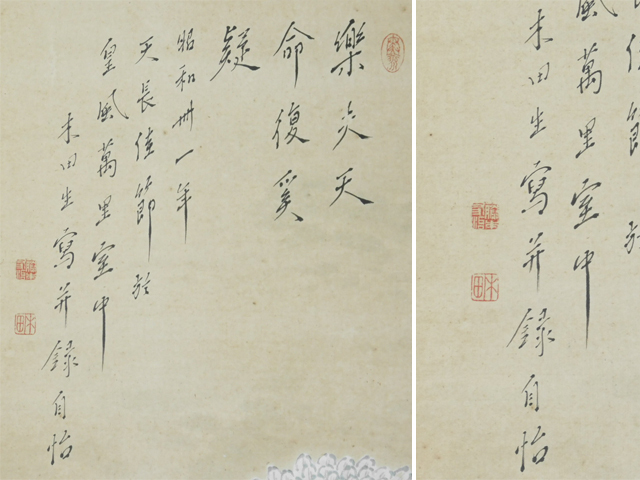 樂夫天
命復奚
疑
昭和卅一年
天長佳節於
皇風萬里室中
未田生寫并録自怡
節於
風萬里室中
未田生寫并録自怡